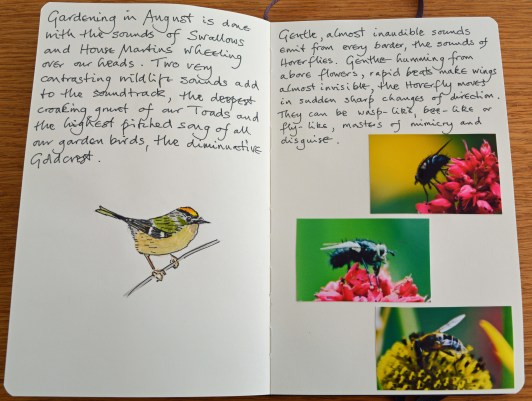 Gardening in August is done
with the sounds of Swallows
and House Martins wheeling
over our heads. Two very
contrasting wildlife sounds add
to the soundtrack, the deepest
croaking grunt of our Toads and
the highest pitched song of all
our garden birds, the diminuative
Goldcrest.
Gentle, almost inaudible sounds
emit from every border, the sounds of
Hoverflies. Gentle humming from
above flowers, rapid beats make wings
almost invisible, the Hoverfly moves
in sudden sharp changes of direction.
They can be wasp-like, bee-like or
fly-like, masters of mimicry and
disguise.